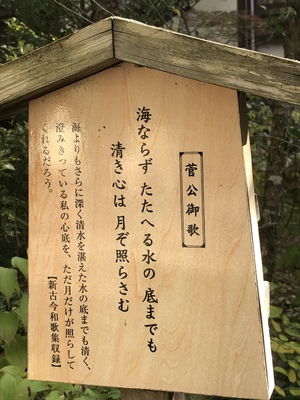 菅公御歌
海ならず たたへる水の 底までも
清き心は 月ぞ照らさむ
海よりもさらに深く清水を湛えた水の底までも清く、
澄みきっている私の心底を、ただ月だけが照らして
くれるだろう。
【新古今和歌集収録】